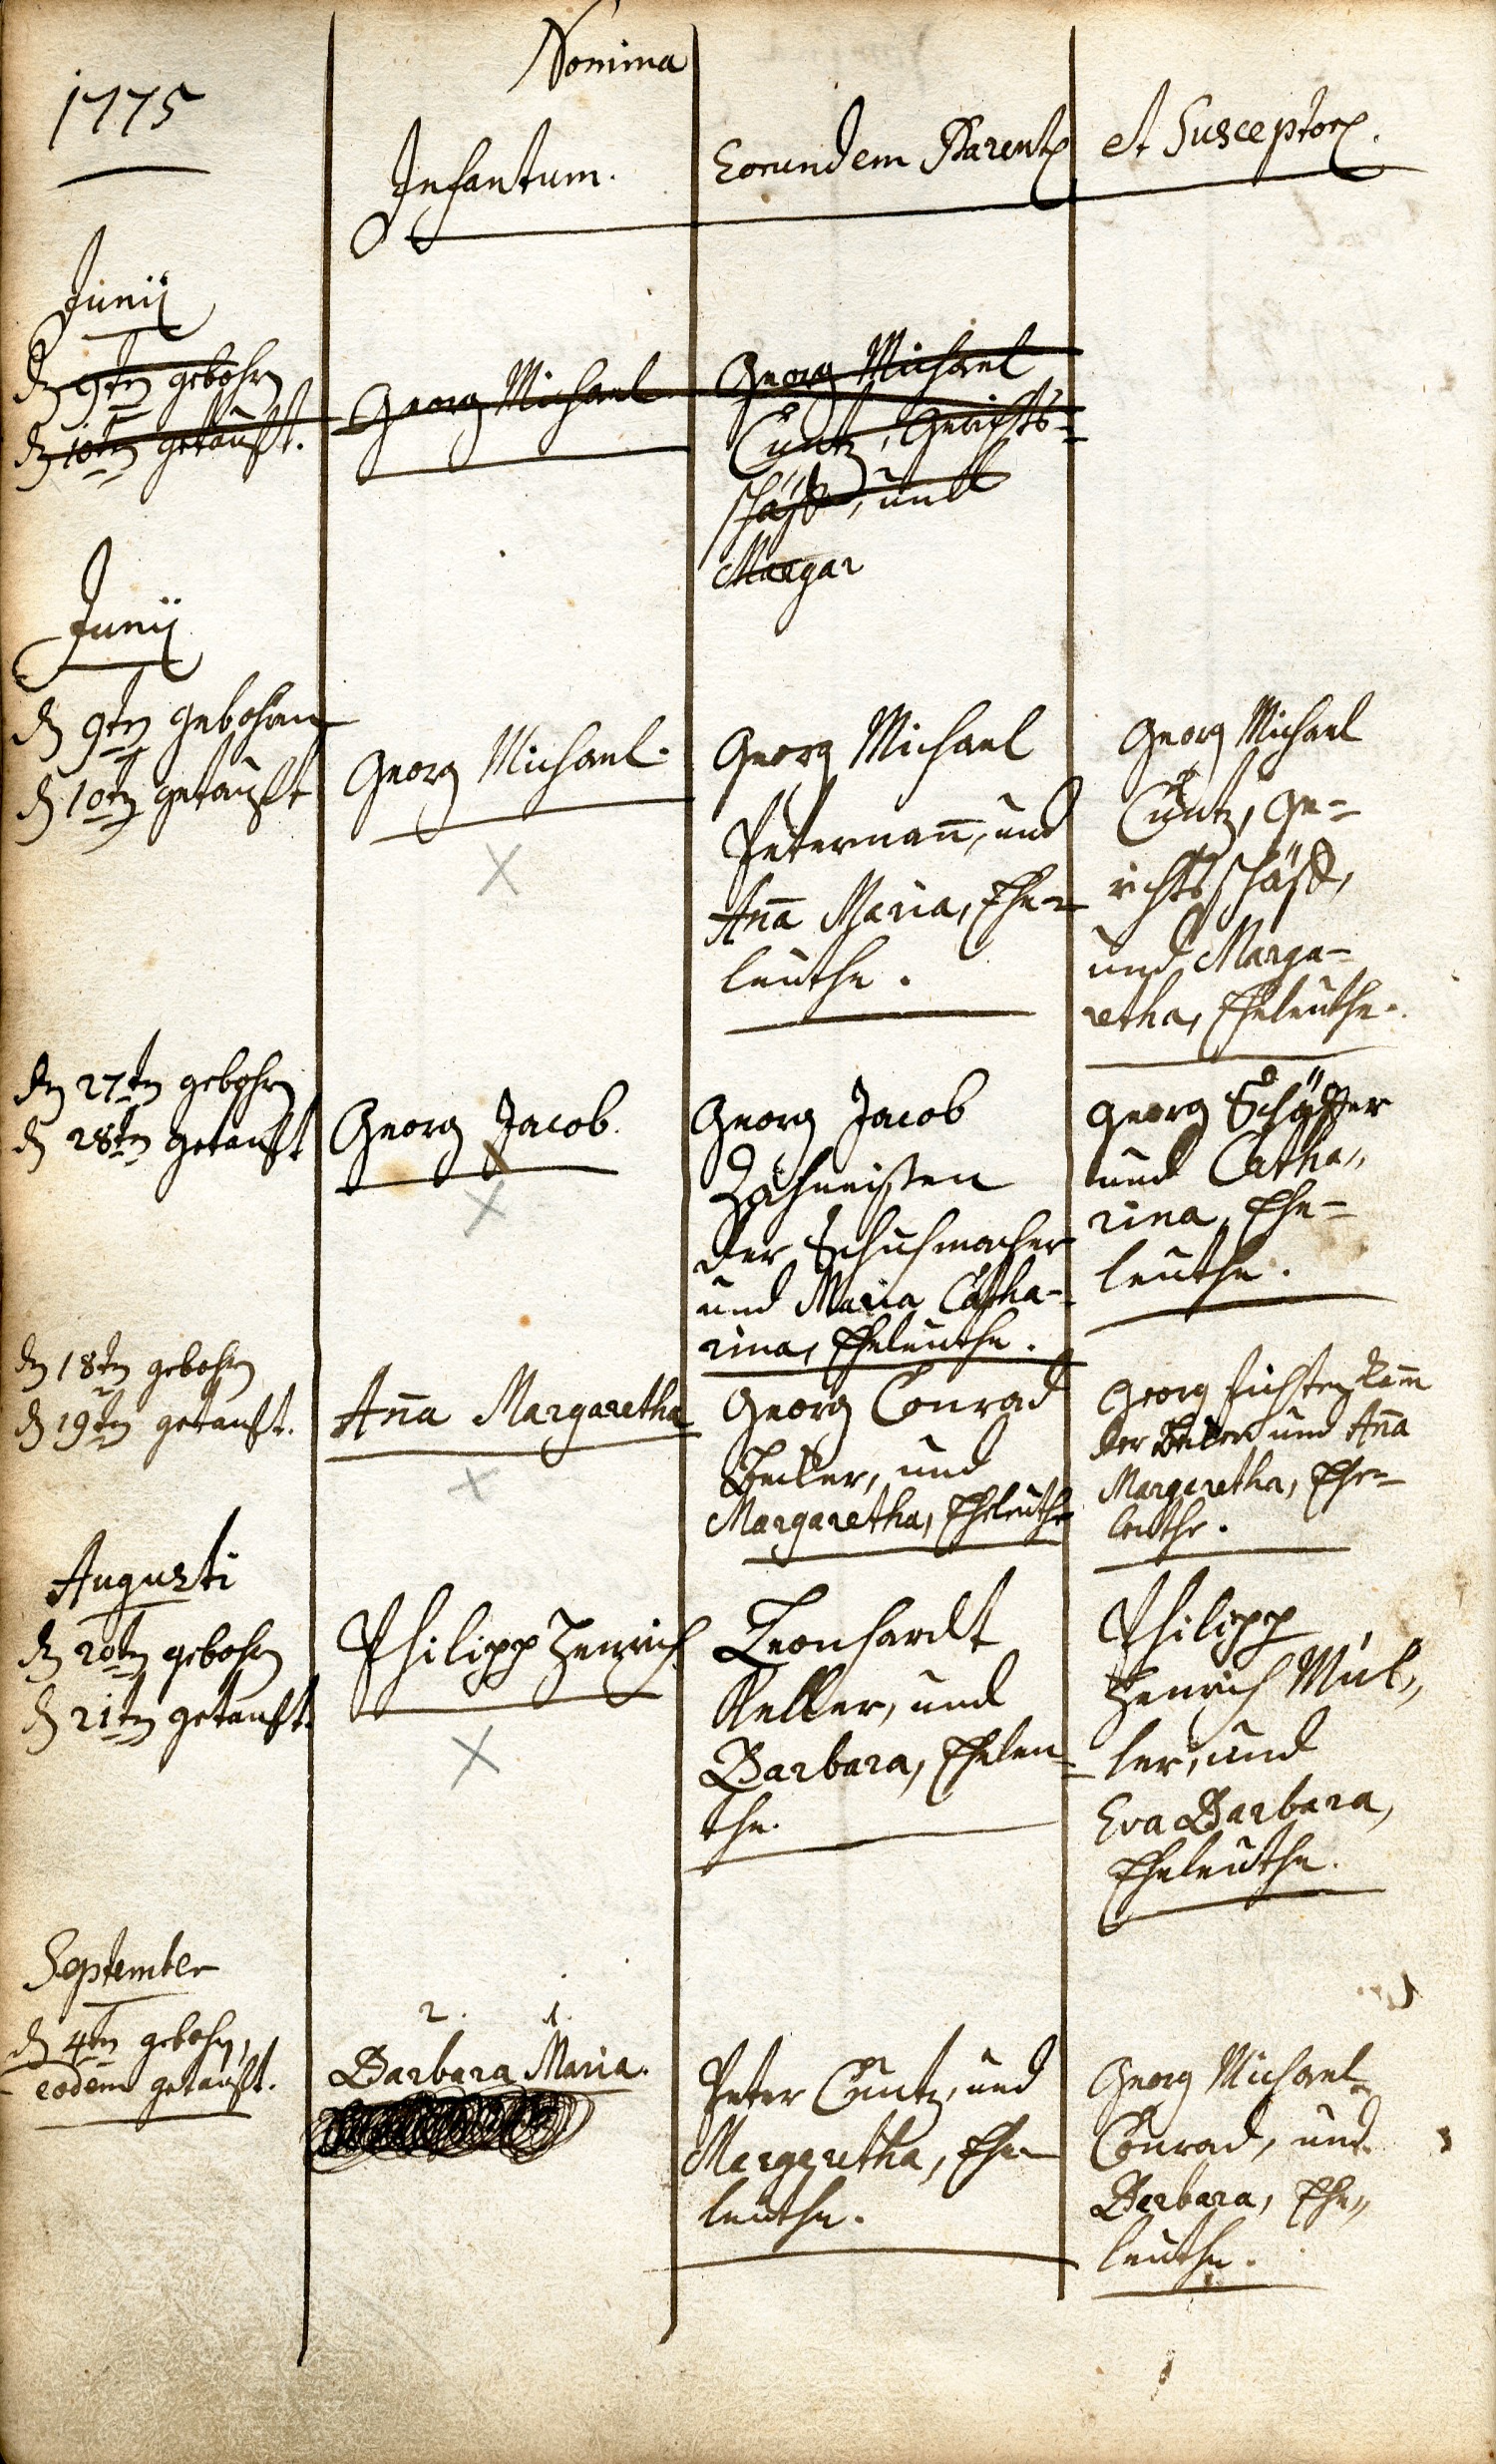 1775
Nomina
Infantum.
Eorundem Parent
et Susceptor.
Junij
d 9ten gebohrn
d 10ten getaufft.
Georg Michael
Georg Michael
Cuntz, Gerichts-
schäff, und
Margar
Junij
d 9ten gebohren
d 10ten getaufft
Georg Michael.
Georg Michael
Petermañ, und
Aña Maria, Ehe-
leuthe.
Georg Michael
Cuntz, Ge-
richts schäff,
und Marga-
retha, Eheleuthe.
den 27ten gebohrn
d 28ten getaufft
Georg Jacob.
Georg Jacob
der Schuhmacher
und Maria Catha-
rina, Eheleuthe.
Georg Schäffer
und Catha„
rina, Ehe-
leuthe.
den 18ten gebohrn
d 19ten getaufft.
Aña Margaretha
Georg Conrad
und
Margaretha, Eheleuthe
Georg
der und Aña
Margaretha, Ehe-
leuthe.
Augusti
d 20ten gebohrn
d 21ten getaufft.
Philipp Henrich
Leonhardt
Keller, und
Barbara, Eheleu-
the.
Philipp
Henrich Mül„
ler, und
Eva Barbara,
Eheleuthe.
September
d 4ten gebohrn,
eodem getaufft.
2. 1.
Barbara Maria.
Peter Cuntz, und
Margaretha, Ehe-
leuthe.
Georg Michael
Conrad, und
Barbara, Ehe„
leuthe.